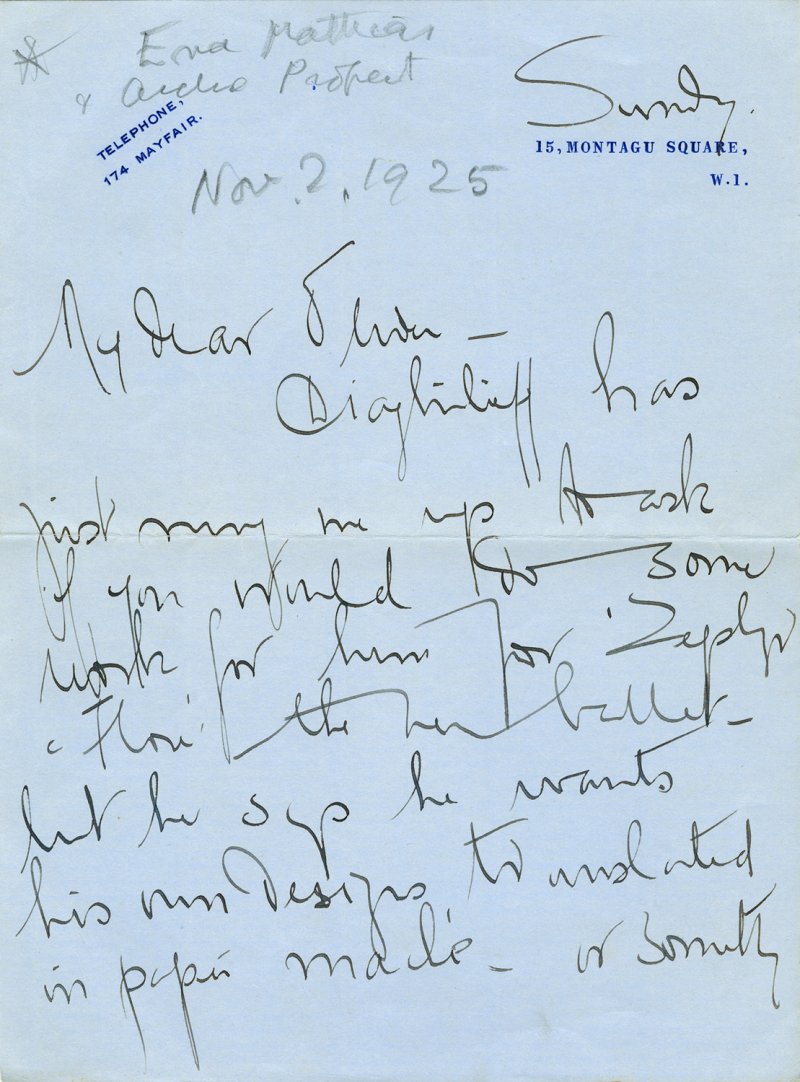 Ena Mathias
& Archie Propert
TELEPHONE,
174 MAYFAIR.
Sunday.
15, MONTAGU SQUARE,
W.1.
Nov. 2, 1925
My dear Oliver —
Diaghileff has
just rung me up to ask
if you would do some
work for him for 'Zephyr
& Flore' the new ballet —
but he says he wants
his own designs translated
in papier maché — or something